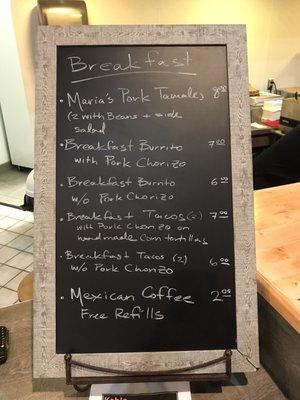 Breakfast
• Maria's Pork Tamales 8.00
(2 with Beans + side
salad
• Breakfast Burrito 7.00
with Pork Chorizo
• Breakfast Burrito 6.00
w/o Pork Chorizo
• Breakfast Tacos (2) 7.00
with Pork Chorizo on
handmade Corn tortillas
• Breakfast Tacos (2) 6.00
w/o Pork Chorizo
• Mexican Coffee 2.05
Free Refills